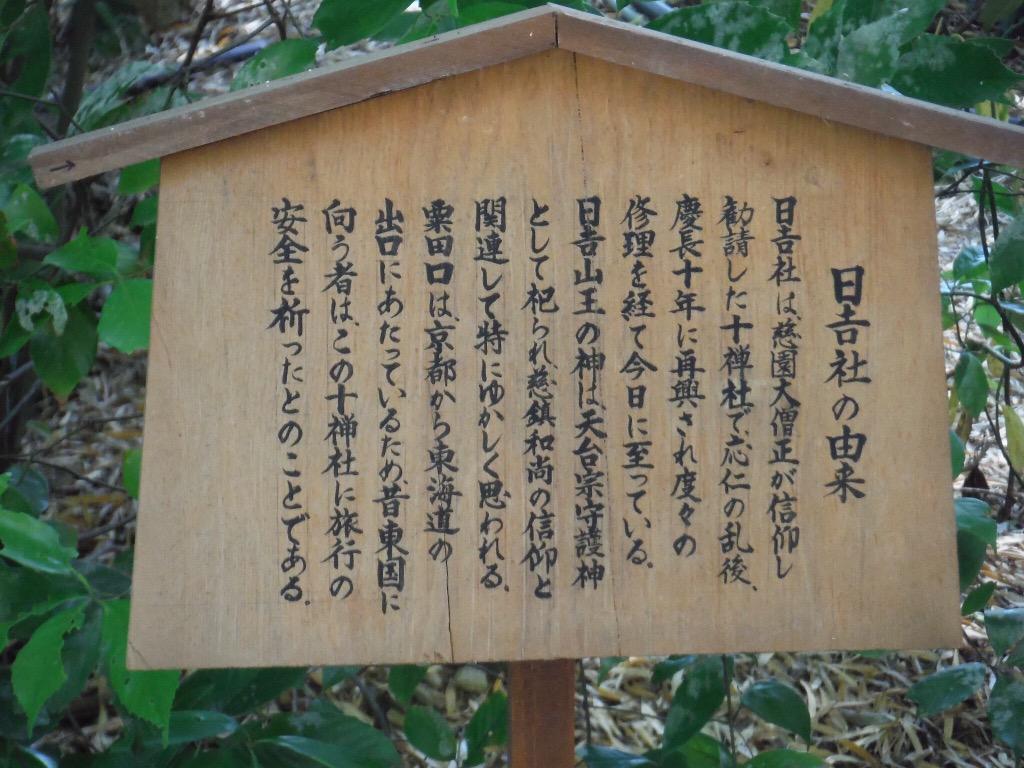 日吉社の由来
日吉社は、慈圓大僧正が信仰し
勧請した十禅社で、応仁の乱後、
慶長十年に再興され度々の
修理を経て今日に至っている。
日吉山王の神は、天台宗守護神
として祀られ、慈鎮和尚の信仰と
関連して特にゆかしく思われる。
粟田口は、京都から東海道の
出口にあたっているため、昔東国に
向う者は、この十禅社に旅行の
安全を祈ったとのことである。